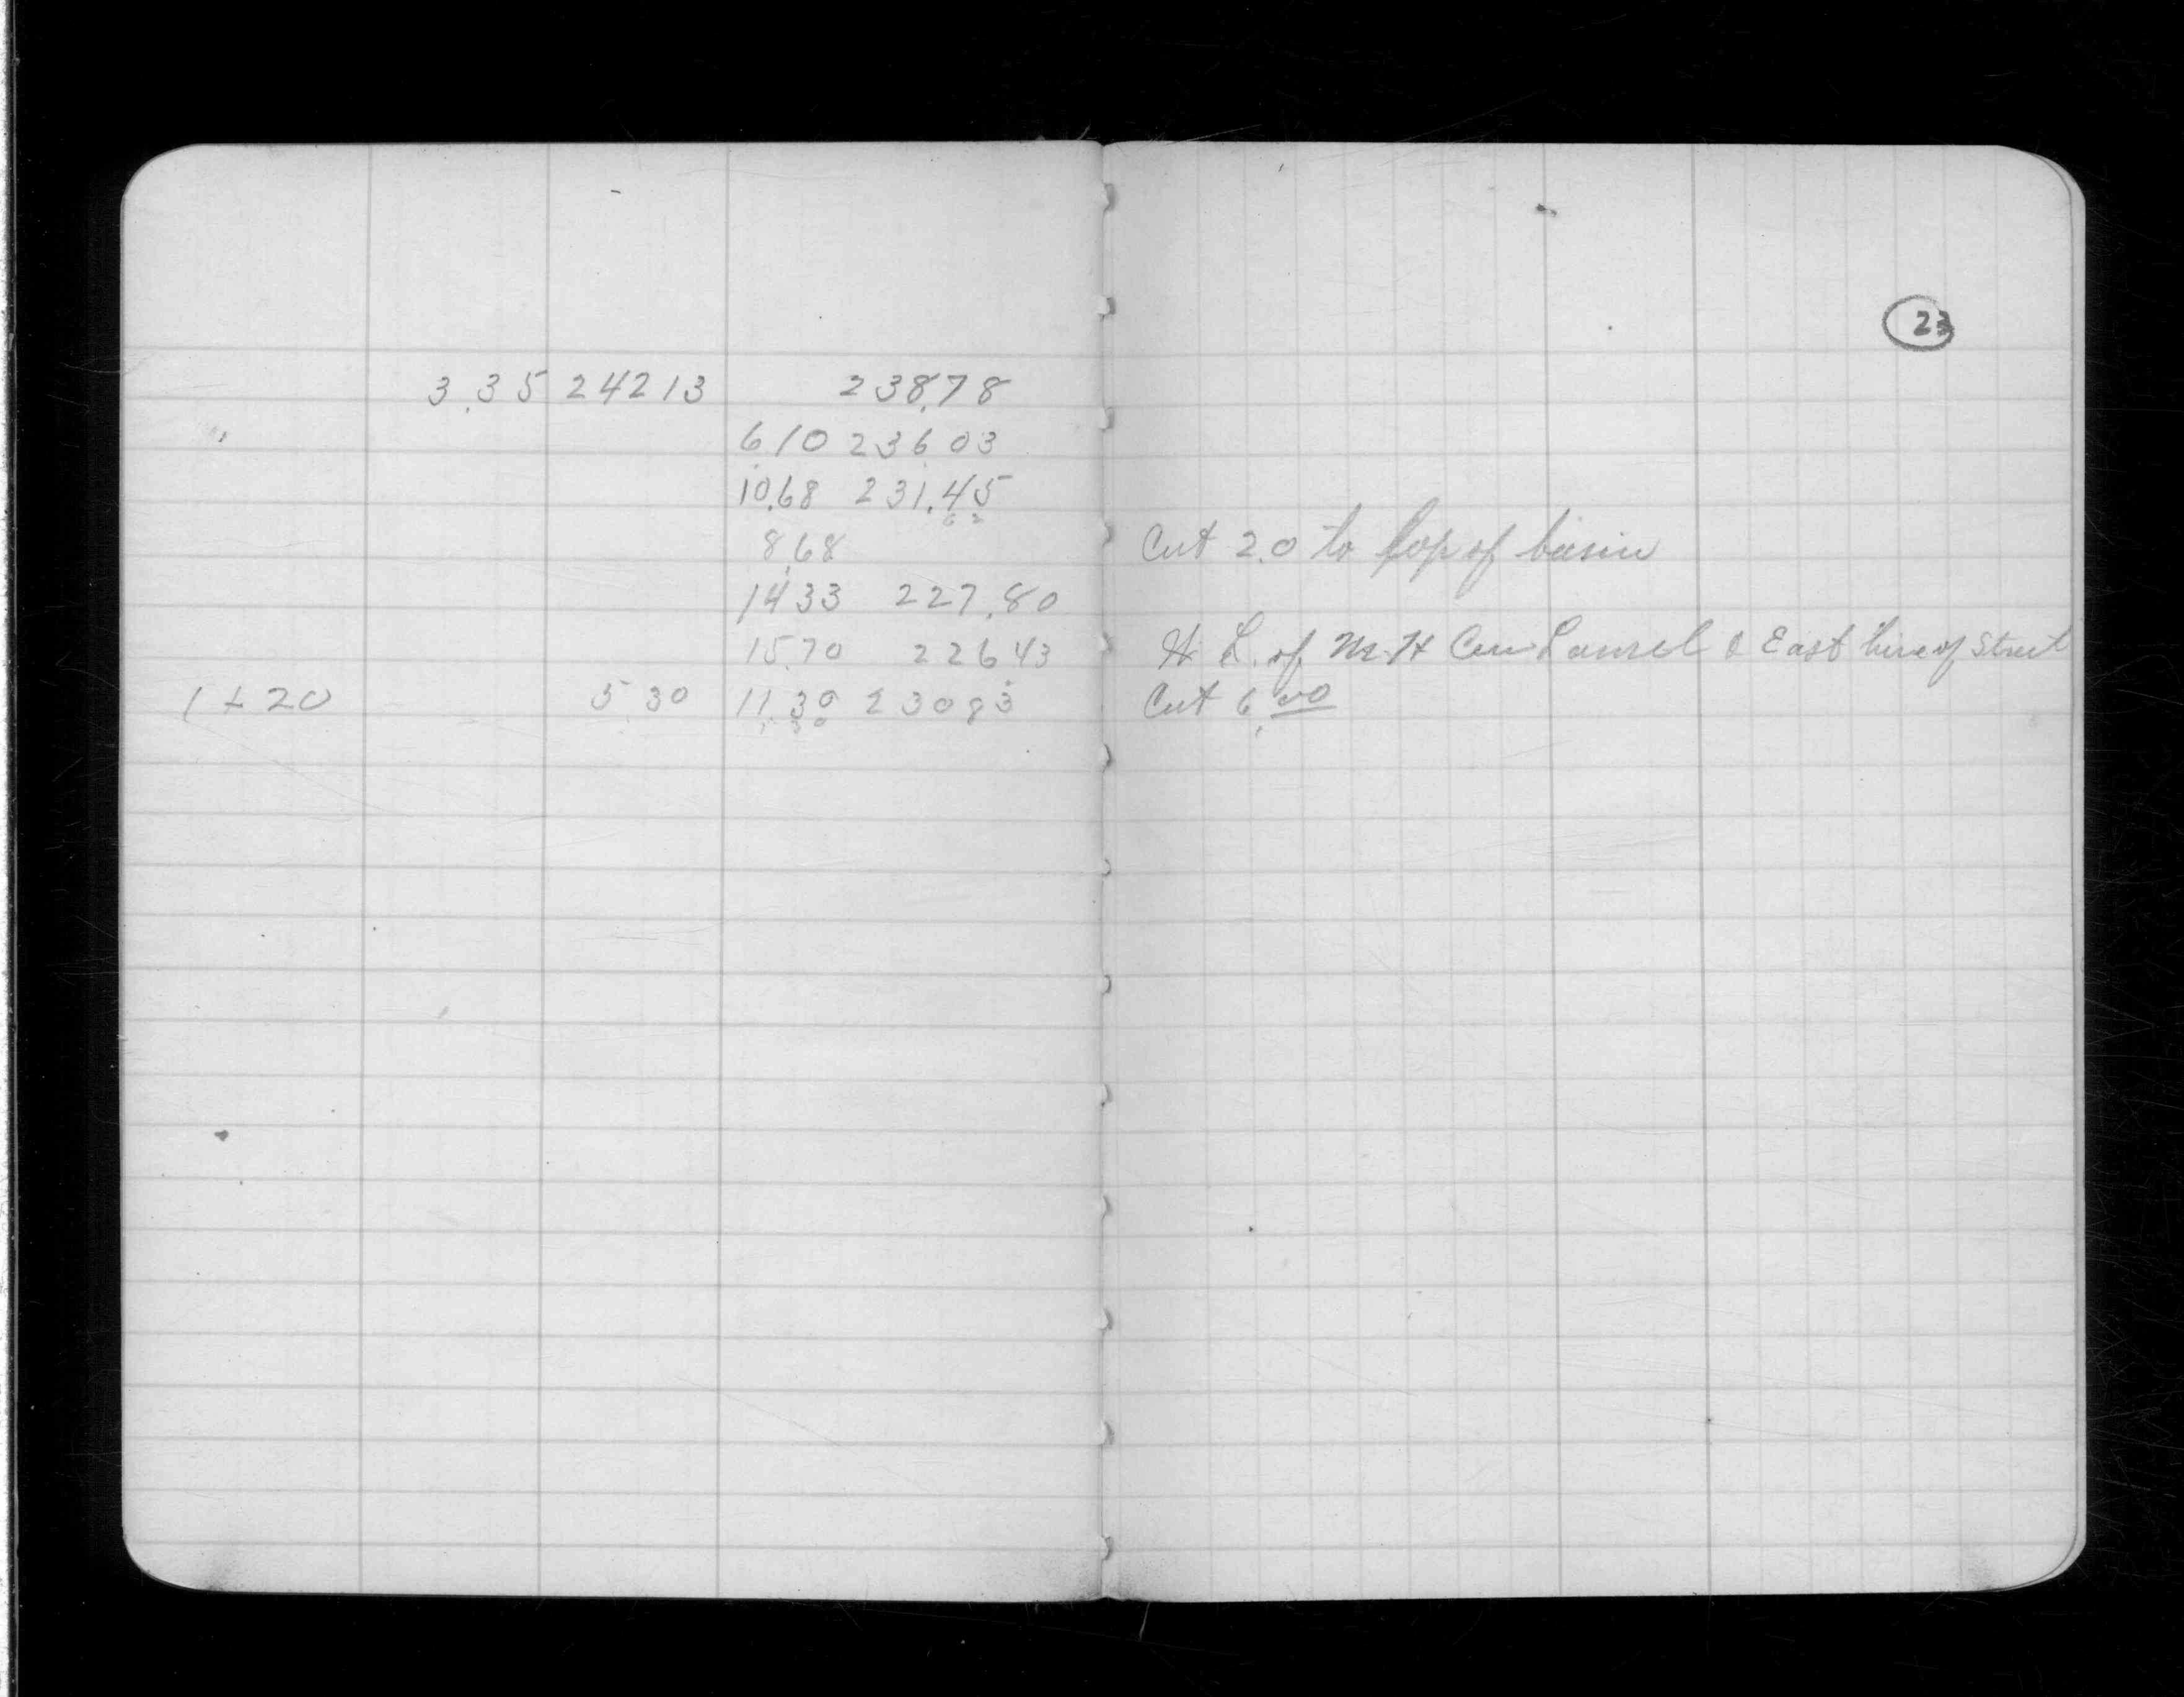 23
3.35 242 13 238.78
" 6 10 236 03
10.68 231.45
8.68 Cut 2.0 to top of basin
14 33 227.80
15.70 226 43 of M.H Cen Laurel & East line of Street
1 + 20 5 30 11 30 230 83 Cut 6.00